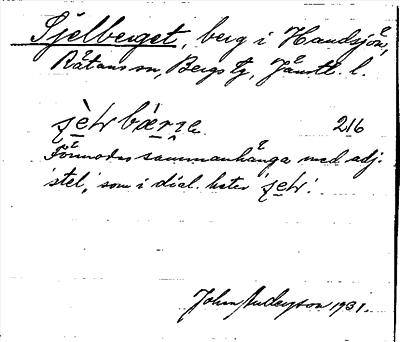 Stjelberget, berg i Handsjön,
Rätans sn, Bergs tg, Jämtl. l.
216
Förmodas sammanhänga med adj.
'stel', som i dial. heter
John Anderzson 1931.